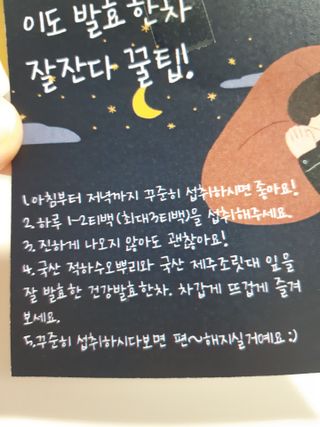 이도 발효한차
잘잔다 꿀팁!
1. 아침부터 저녁까지 꾸준히 섭취하시면 좋아요!
2. 하루 1~2티백(최대3티백)을 섭취해주세요.
3. 진하게 나오지 않아도 괜찮아요!
4. 국산 적하수오뿌리와 국산 제주조릿대 잎을
잘 발효한 건강발효한차. 차갑게 뜨겁게 즐겨
보세요.
5. 꾸준히 섭취하시다보면 편~해지실거예요 :)